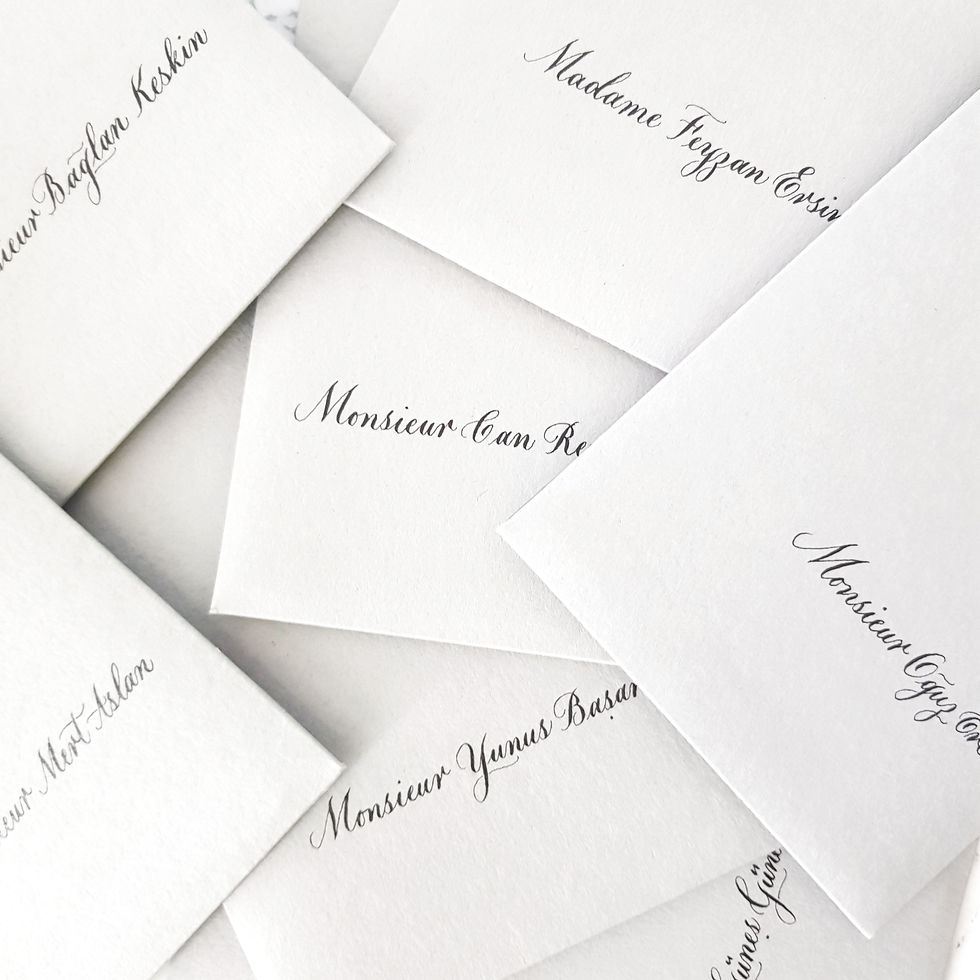 Bağlan Keskin
Madame Feyzan Ersin
Monsieur Can
Monsieur Oğuz
Mert Aslan
Monsieur Yunus Başar